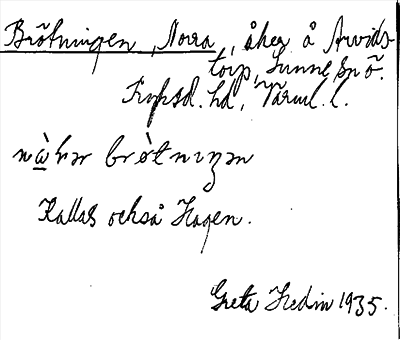 Brötningen, Norra, åker å Arvids-
torp, Sunne sn ö.
Fryksd. hd, Värml. l.
nὼrər brὼtnıŋən
Kallas också Hagen.
Greta Hedin 1935.